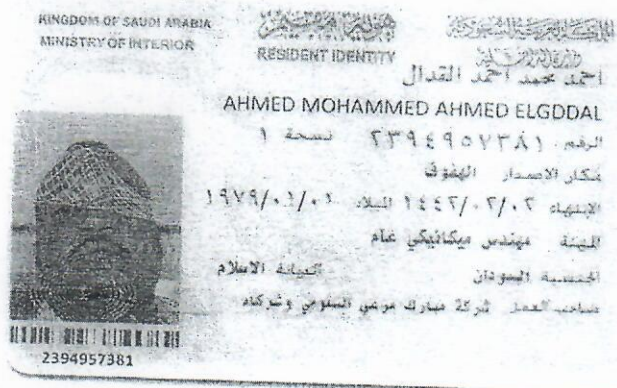 KINGDOM OF SAUDI ARABIA
MINISTRY OF INTERIOR
هوية مقيم
RESIDENT IDENTITY
المملكة العربية السعودية
وزارة الداخلية
احمد محمد احمد القدال
AHMED MOHAMMED AHMED ELGDDAL
الرقم ٢٣٩٤٩٥٧٣٨١ نسخة ١
مكان الاصدار الهفوف
الانتهاء ١٤٤٢/٠٢/٠٢ الميلاد ١٩٧٩/٠١/٠١
المهنة مهندس ميكانيكي عام
الجنسية السودان الديانة الاسلام
صاحب العمل شركة مبارك وشركاه
2394957381